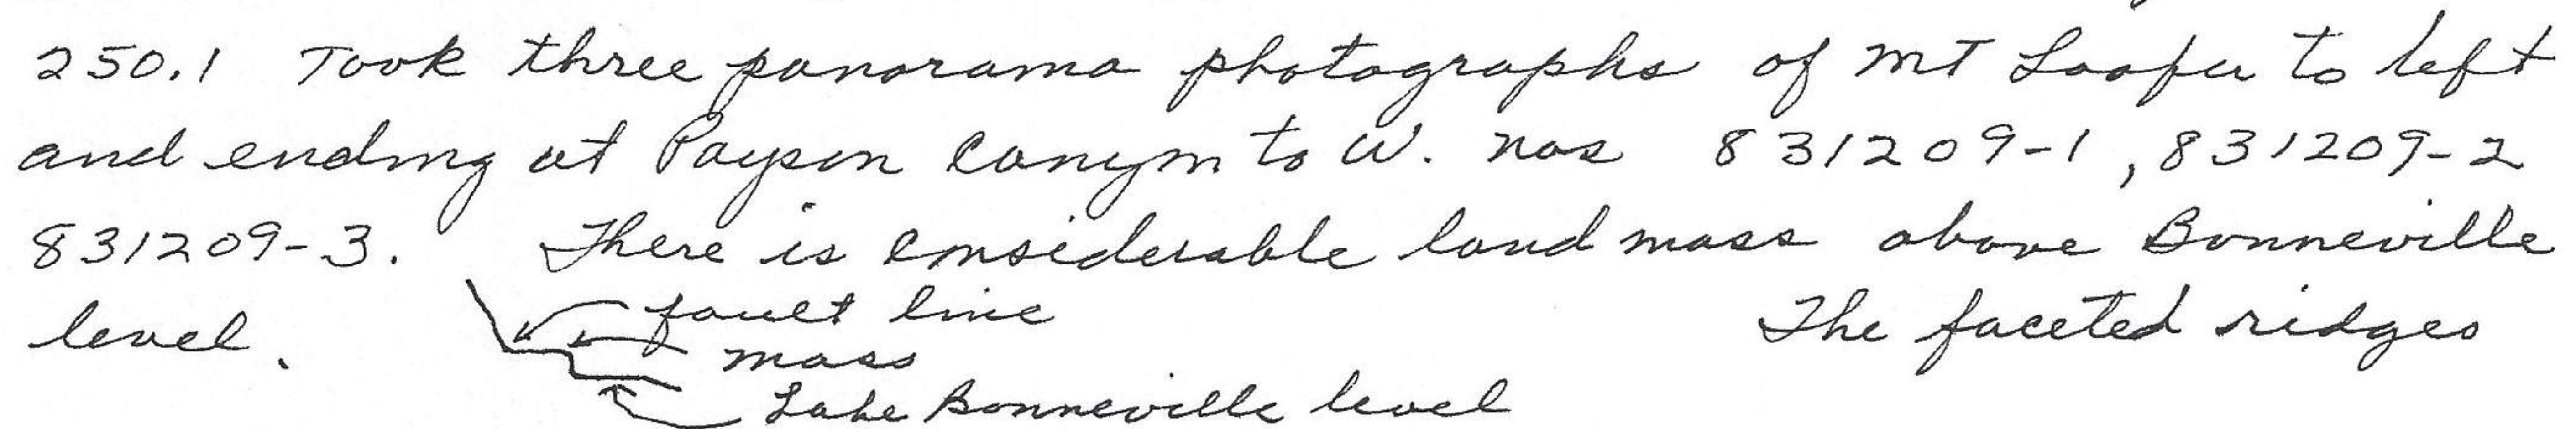 250.1 Took three panorama photographs of MT Loafer to left
and ending at Payson Canyon to W. nos 831209-1, 831209-2
831209-3. There is considerable land mass above Bonneville
level. The faceted ridges
fault line
mass
Lake Bonneville level